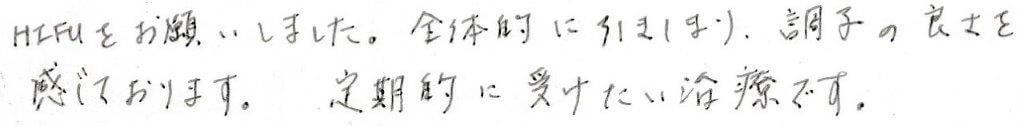 HIFUをお願いしました。全体的に引きしまり、調子の良さを
感じております。 定期的に受けたい治療です。